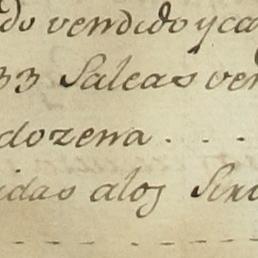 do vendido y ca
33 Saleas ven
dozena . . . .
idas alos Sir